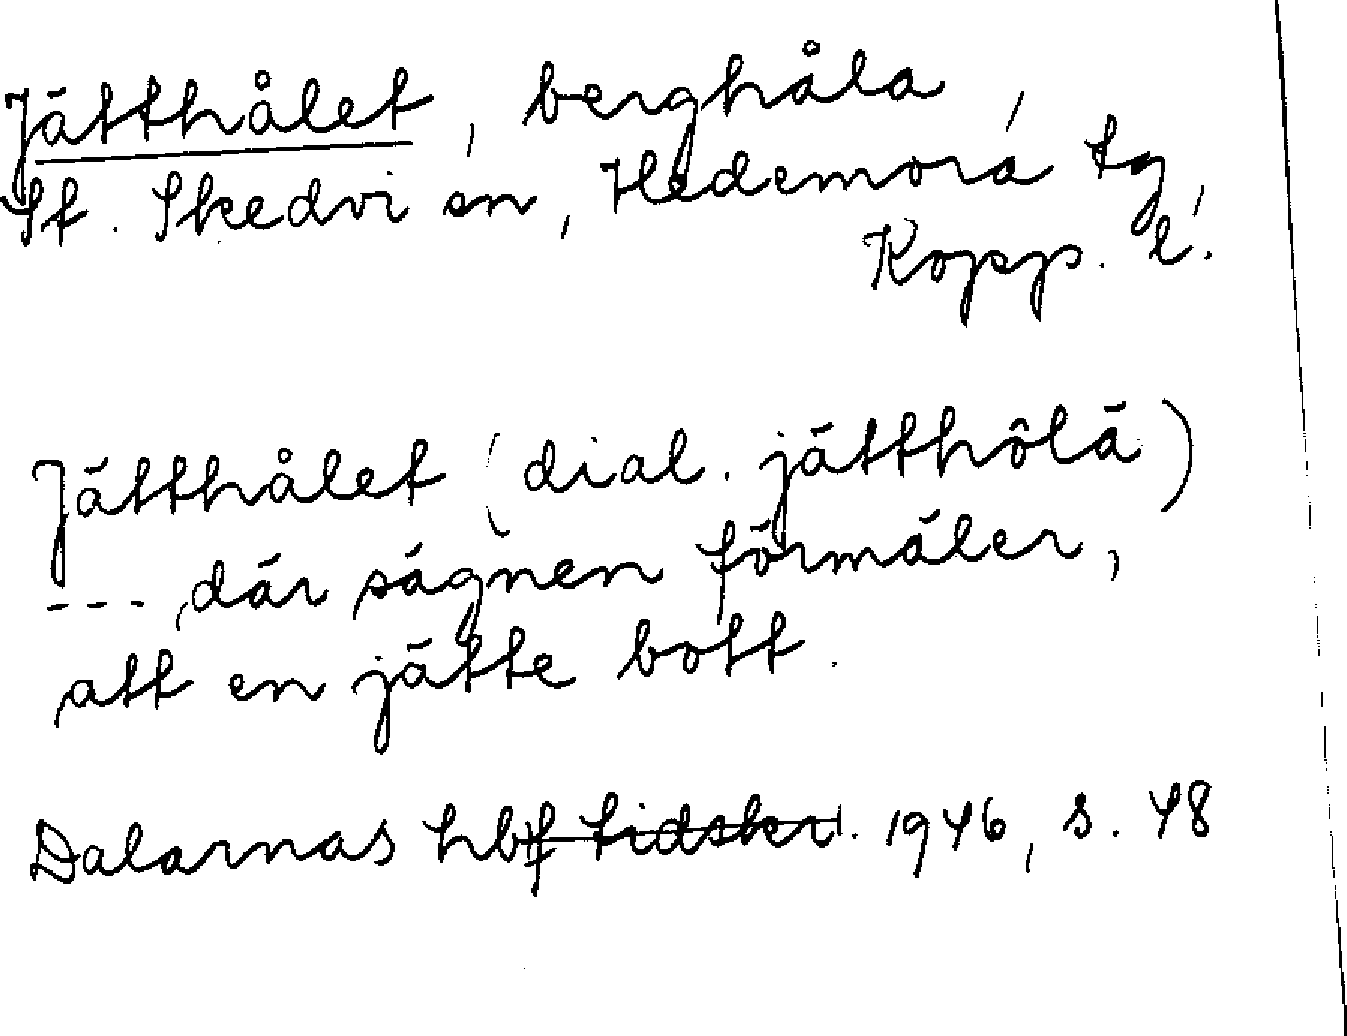 Jätthålet, berghåla,
St. Skedvi sn, Hedemora tg,
Kopp. l.
Jätthålet (dial. jätthôlä)
---, där sägnen förmäler,
att en jätte bott.
Dalarnas hbf tidskr. 1946, s. 48